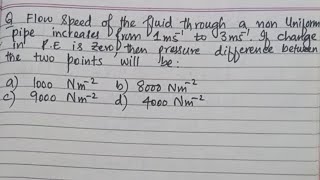 Q Flow Speed of the fluid through a non Uniform
pipe increases from 1ms⁻¹ to 3ms⁻¹. If change
in P.E is zero, then pressure difference between
the two points will be:
a) 1000 Nm⁻² b) 8000 Nm⁻²
c) 9000 Nm⁻² d) 4000 Nm⁻²